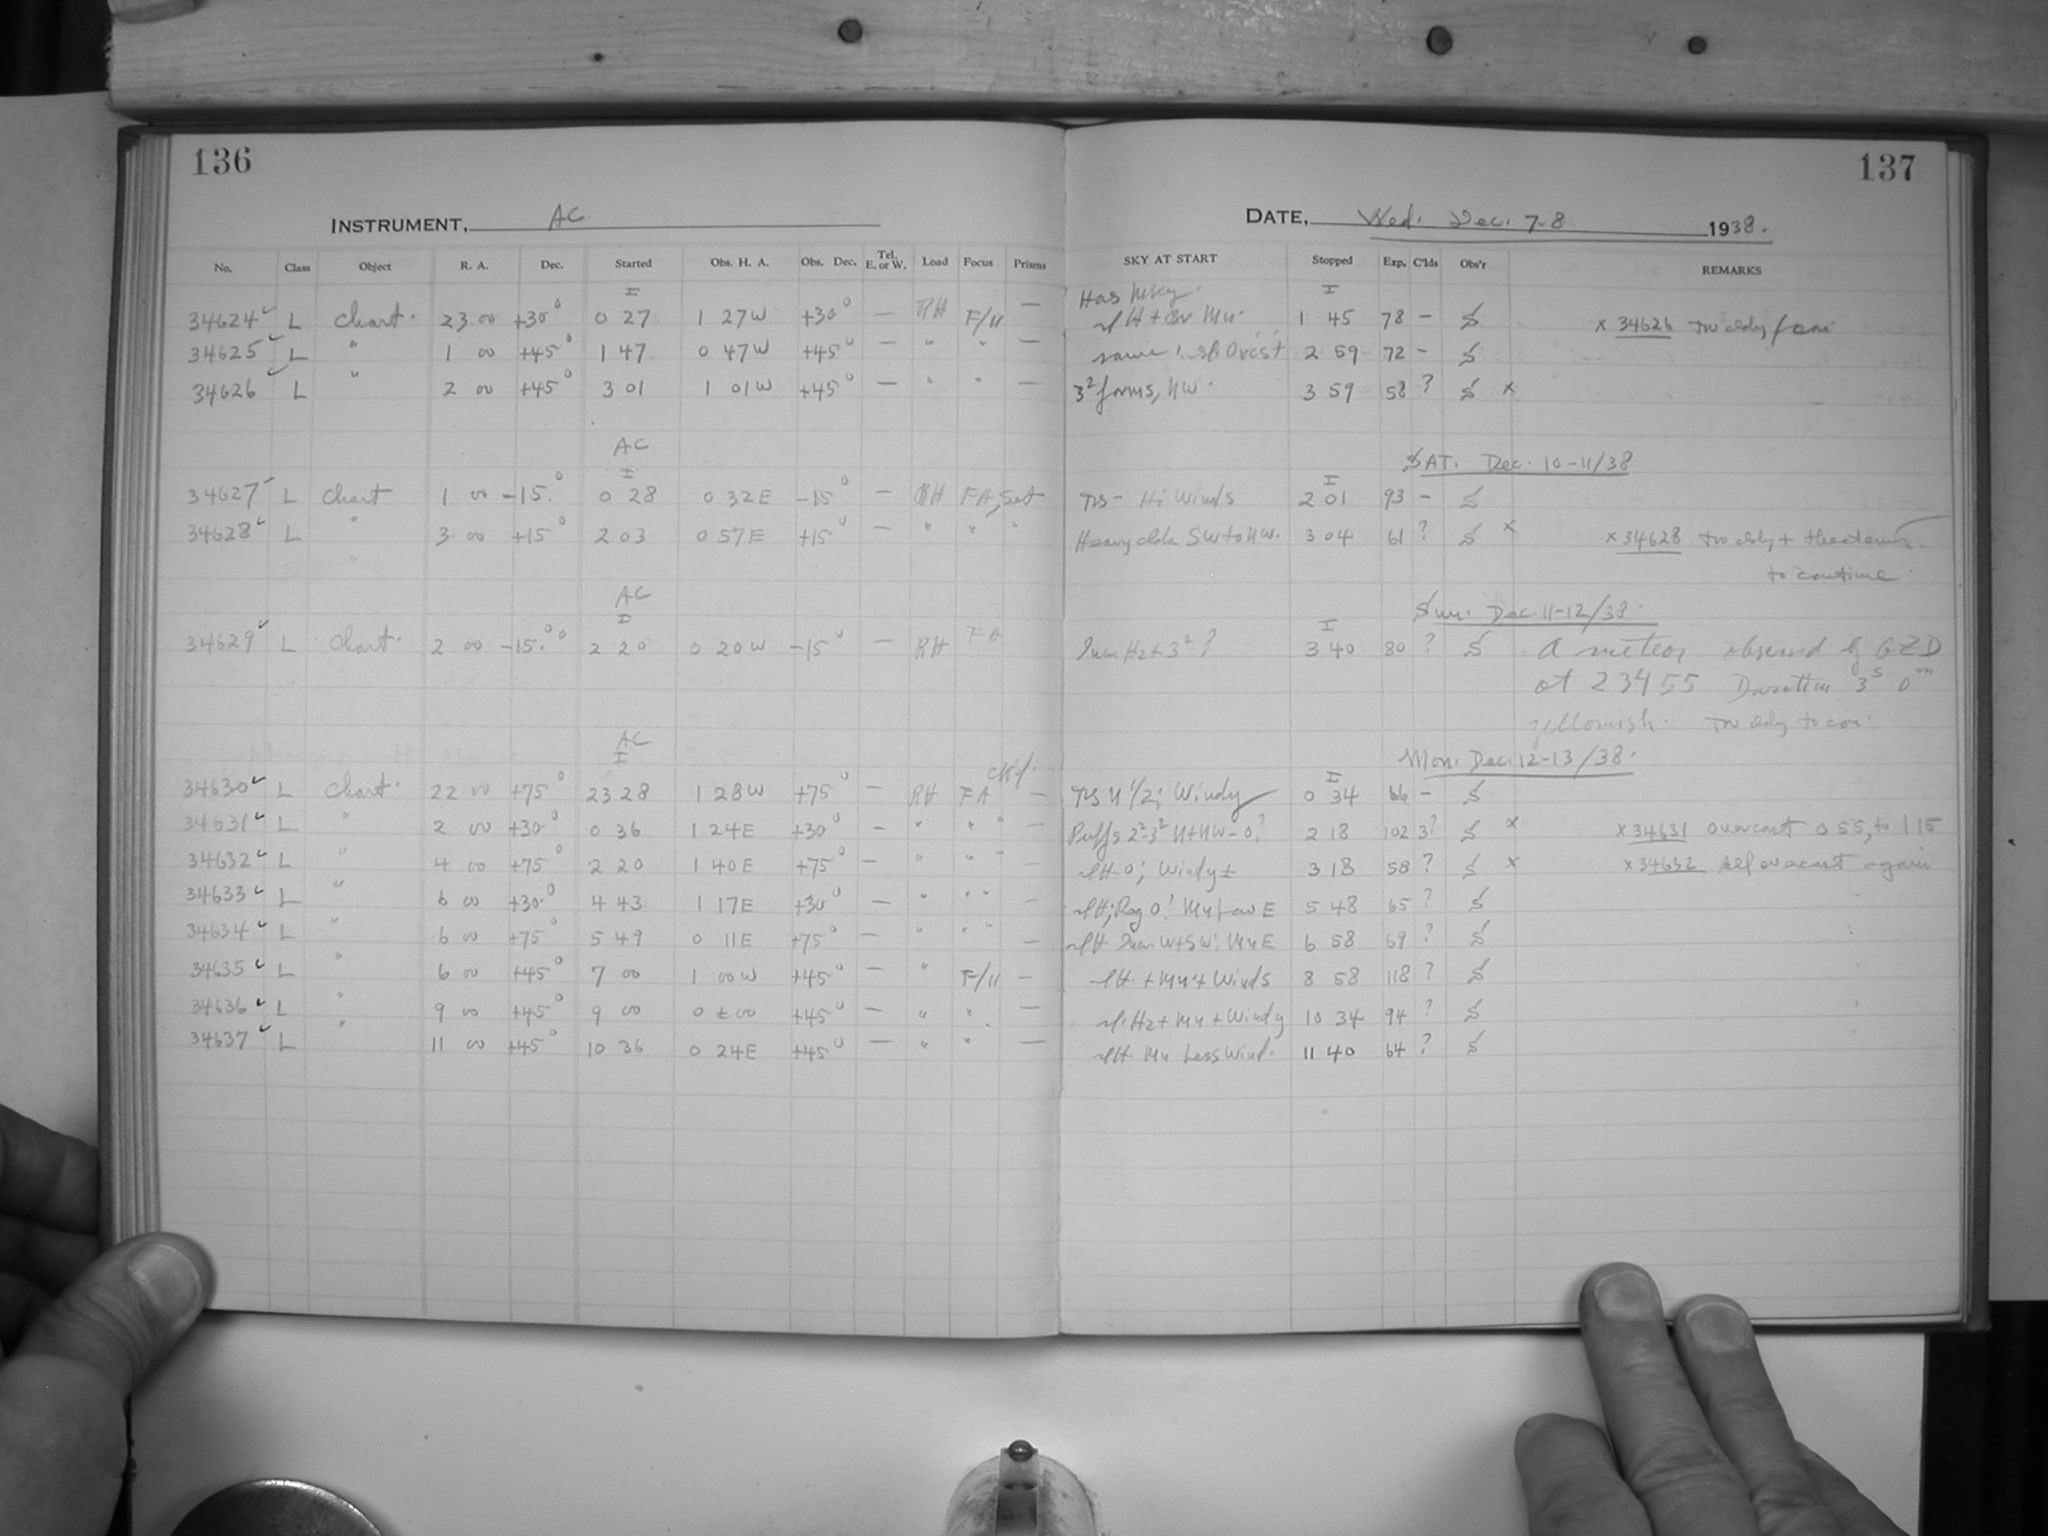 136
137
INSTRUMENT, AC
DATE, Wed. Dec. 7-8 1938.
No. Class Object R. A. Dec. Started Obs. H. A. Obs. Dec. Tel. E. or W. Load Focus Prisms SKY AT START Stopped Exp. C'lds Obs'r REMARKS
I Has I
34624 L Chart. 23 00 +30° 0 27 1 27W +30° — RH F/11 — 1 45 78 – S x 34626
34625 L " 1 00 +45° 1 47 0 47W +45° — " " — same 2 59 72 – S
34626 L " 2 00 +45° 3 01 1 01W +45° — " " — 3² forms, NW. 3 59 58 ? S x
AC
SAT. Dec. 10-11/38
I I
34627 L Chart 1 00 -15.° 0 28 0 32E -15° — RH FA, Set Hi Winds 2 01 93 – S
34628 L " 3 00 +15° 2 03 0 57E +15° — " " " Heavy clds SW to NW. 3 04 61 ? S x x 34628
to continue.
AC
Sun. Dec. 11-12/38.
I I
34629 L Chart. 2 00 -15.° 2 20 0 20W -15° — RH FA 3 40 80 ? S A meteor observed by GZD
at 23455 Duration 3ˢ 0ᵐ
yellowish.
AC
Mon. Dec. 12-13/38.
I I
34630 L Chart. 22 00 +75° 23 28 1 28W +75° — RH FA ck'd. — N 1/2; Windy 0 34 66 – S
34631 L " 2 00 +30° 0 36 1 24E +30° — " " " — Puffs 2²-3² N+NW-0? 2 18 102 3? S x x 34631 overcast 0 55, to 1 15
34632 L " 4 00 +75° 2 20 1 40E +75° — " " " — Windy ± 3 18 58 ? S x x 34632 overcast again
34633 L " 6 00 +30° 4 43 1 17E +30° — " " " — 5 48 65 ? S
34634 L " 6 00 +75° 5 49 0 11E +75° — " " " — 6 58 69 ? S
34635 L " 6 00 +45° 7 00 1 00W +45° — " F/11 — Winds 8 58 118 ? S
34636 L " 9 00 +45° 9 00 0 ± 00 +45° — " " — Windy 10 34 94 ? S
34637 L " 11 00 +45° 10 36 0 24E +45° — " " — Less Wind. 11 40 64 ? S